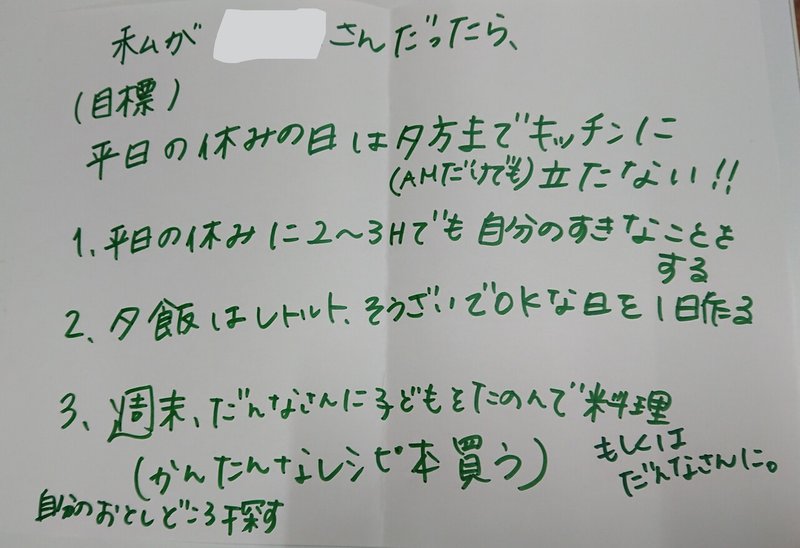 私が さんだったら、
(目標)
平日の休みの日は夕方までキッチンに
(AMだけでも)立たない!!
1、平日の休みに2〜3Hでも自分のすきなことを
する
2、夕飯はレトルト、そうざいでOKな日を1日作る
3、週末、だんなさんに子どもをたのんで料理
(かんたんなレシピ本買う)
もしくは
だんなさんに。
自分のおとしどころ探す